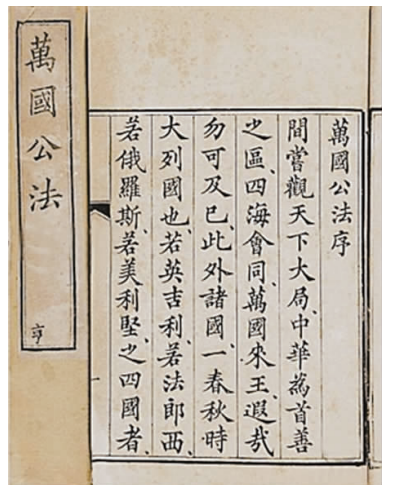 萬國公法
亨
萬國公法序
間嘗觀天下大局、中華為首善
之區、四海會同、萬國來王、遐哉
勿可及已、此外諸國、一春秋時
大列國也、若英吉利、若法郎西、
若俄羅斯、若美利堅、之四國者、